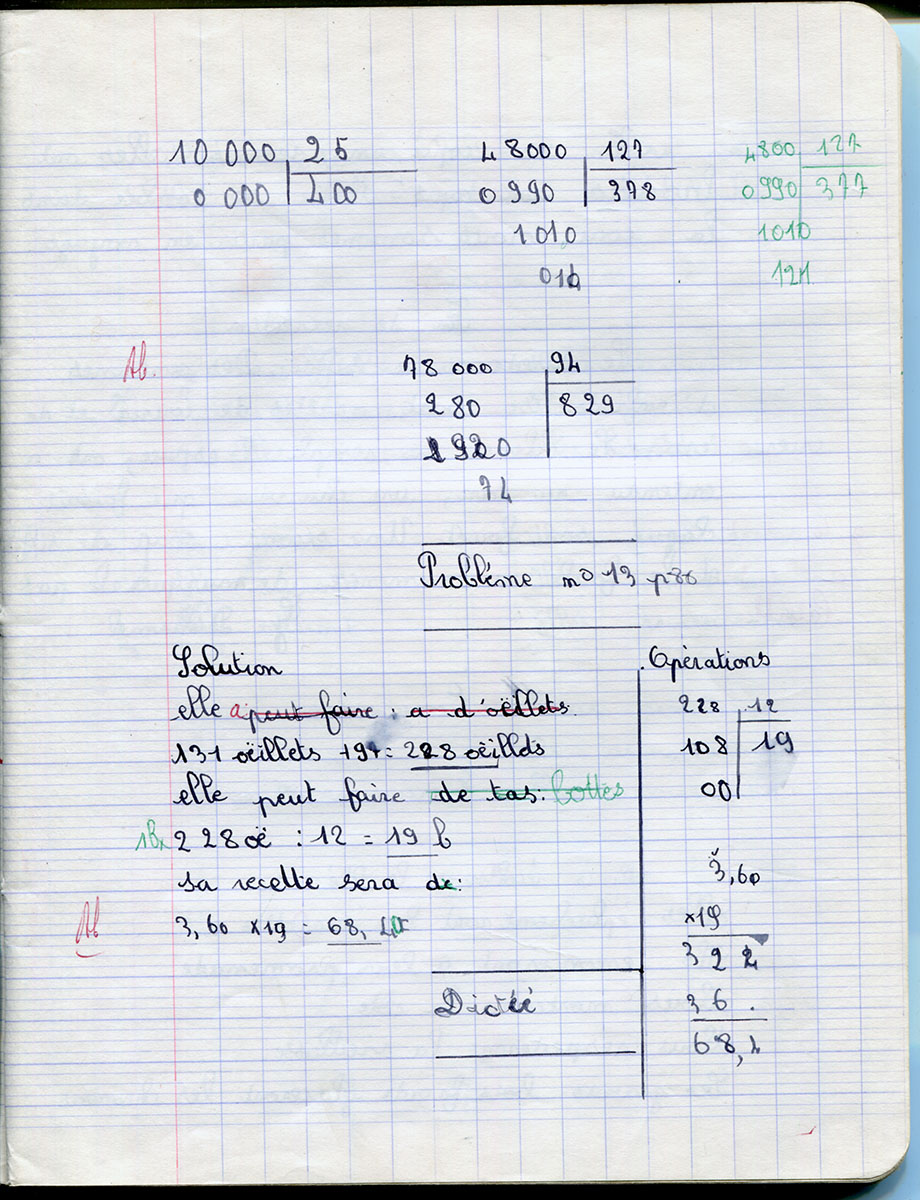 10 000 25
0 000 400
48000 127
0 990 378
1010
014
4800 127
0990 377
1010
121
Ab.
78 000 94
280 829
1920
74
Problème no 13 p86
Solution
elle a peut faire : a d'oëillets
131 oëillets +97= 228 oëillets
elle peut faire de tas: bottes
1B. 228 oë : 12 = 19 b
sa recette sera de:
Ab 3,60 x 19 = 68,40
Dictée
Opérations
228 12
108 19
00
3,60
x19
322
36 .
68,4